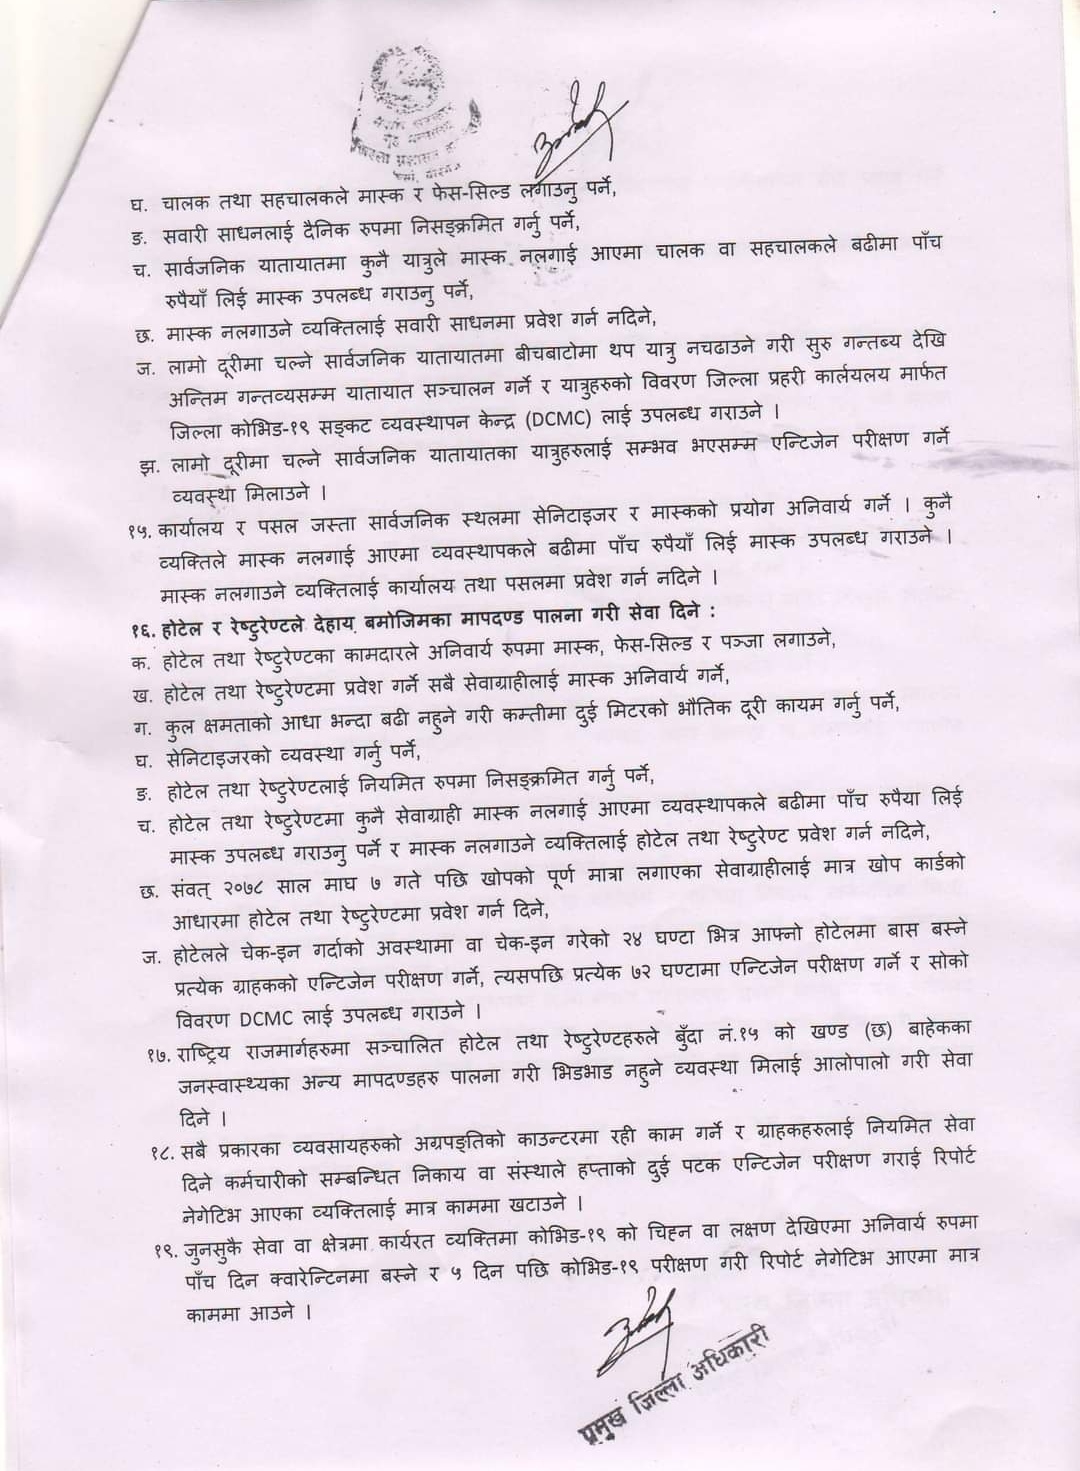 नेपाल सरकार
गृह मन्त्रालय
जिल्ला प्रशासन
घ. चालक तथा सहचालकले मास्क र फेस-सिल्ड लगाउनु पर्ने,
ङ. सवारी साधनलाई दैनिक रुपमा निसङ्क्रमित गर्नु पर्ने,
च. सार्वजनिक यातायातमा कुनै यात्रुले मास्क नलगाई आएमा चालक वा सहचालकले बढीमा पाँच
रुपैयाँ लिई मास्क उपलब्ध गराउनु पर्ने,
छ. मास्क नलगाउने व्यक्तिलाई सवारी साधनमा प्रवेश गर्न नदिने,
ज. लामो दूरीमा चल्ने सार्वजनिक यातायातमा बीचबाटोमा थप यात्रु नचढाउने गरी सुरु गन्तब्य देखि
अन्तिम गन्तव्यसम्म यातायात सञ्चालन गर्ने र यात्रुहरुको विवरण जिल्ला प्रहरी कार्लयलय मार्फत
जिल्ला कोभिड-१९ सङ्कट व्यवस्थापन केन्द्र (DCMC) लाई उपलब्ध गराउने ।
झ. लामो दूरीमा चल्ने सार्वजनिक यातायातका यात्रुहरुलाई सम्भव भएसम्म एन्टिजेन परीक्षण गर्ने
व्यवस्था मिलाउने ।
१५. कार्यालय र पसल जस्ता सार्वजनिक स्थलमा सेनिटाइजर र मास्कको प्रयोग अनिवार्य गर्ने । कुनै
व्यक्तिले मास्क नलगाई आएमा व्यवस्थापकले बढीमा पाँच रुपैयाँ लिई मास्क उपलब्ध गराउने ।
मास्क नलगाउने व्यक्तिलाई कार्यालय तथा पसलमा प्रवेश गर्न नदिने ।
१६. होटेल र रेष्टुरेण्टले देहाय बमोजिमका मापदण्ड पालना गरी सेवा दिने :
क. होटेल तथा रेष्टुरेण्टका कामदारले अनिवार्य रुपमा मास्क, फेस-सिल्ड र पञ्जा लगाउने,
ख. होटेल तथा रेष्टुरेण्टमा प्रवेश गर्ने सबै सेवाग्राहीलाई मास्क अनिवार्य गर्ने,
ग. कुल क्षमताको आधा भन्दा बढी नहुने गरी कम्तीमा दुई मिटरको भौतिक दूरी कायम गर्नु पर्ने,
घ. सेनिटाइजरको व्यवस्था गर्नु पर्ने,
ङ. होटेल तथा रेष्टुरेण्टलाई नियमित रुपमा निसङ्क्रमित गर्नु पर्ने,
च. होटेल तथा रेष्टुरेण्टमा कुनै सेवाग्राही मास्क नलगाई आएमा व्यवस्थापकले बढीमा पाँच रुपैया लिई
मास्क उपलब्ध गराउनु पर्ने र मास्क नलगाउने व्यक्तिलाई होटेल तथा रेष्टुरेण्ट प्रवेश गर्न नदिने,
छ. संवत् २०७८ साल माघ ७ गते पछि खोपको पूर्ण मात्रा लगाएका सेवाग्राहीलाई मात्र खोप कार्डको
आधारमा होटेल तथा रेष्टुरेण्टमा प्रवेश गर्न दिने,
ज. होटेलले चेक-इन गर्दाको अवस्थामा वा चेक-इन गरेको २४ घण्टा भित्र आफ्नो होटेलमा बास बस्ने
प्रत्येक ग्राहकको एन्टिजेन परीक्षण गर्ने, त्यसपछि प्रत्येक ७२ घण्टामा एन्टिजेन परीक्षण गर्ने र सोको
विवरण DCMC लाई उपलब्ध गराउने ।
१७. राष्ट्रिय राजमार्गहरुमा सञ्चालित होटेल तथा रेष्टुरेण्टहरुले बुँदा नं.१५ को खण्ड (छ) बाहेकका
जनस्वास्थ्यका अन्य मापदण्डहरु पालना गरी भिडभाड नहुने व्यवस्था मिलाई आलोपालो गरी सेवा
दिने ।
१८. सबै प्रकारका व्यवसायहरुको अग्रपङ्तिको काउन्टरमा रही काम गर्ने र ग्राहकहरुलाई नियमित सेवा
दिने कर्मचारीको सम्बन्धित निकाय वा संस्थाले हप्ताको दुई पटक एन्टिजेन परीक्षण गराई रिपोर्ट
नेगेटिभ आएका व्यक्तिलाई मात्र काममा खटाउने ।
१९. जुनसुकै सेवा वा क्षेत्रमा कार्यरत व्यक्तिमा कोभिड-१९ को चिह्न वा लक्षण देखिएमा अनिवार्य रुपमा
पाँच दिन क्वारेन्टिनमा बस्ने र ५ दिन पछि कोभिड-१९ परीक्षण गरी रिपोर्ट नेगेटिभ आएमा मात्र
काममा आउने ।
प्रमुख जिल्ला अधिकारी